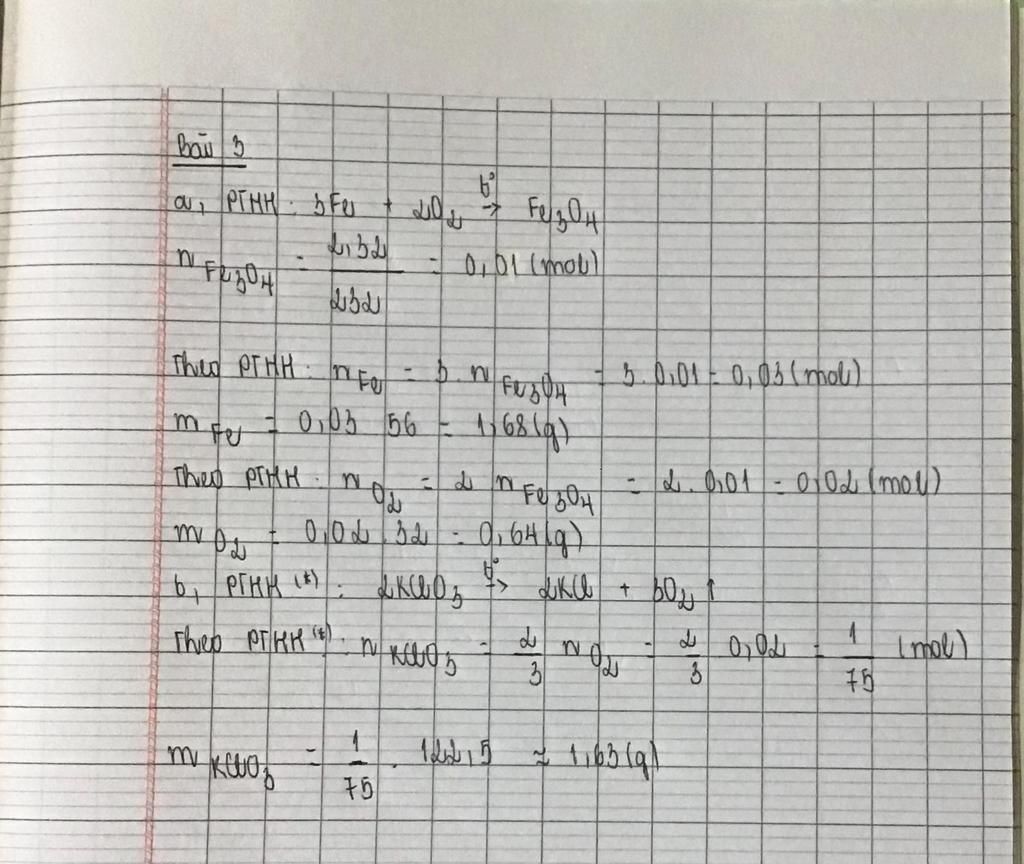 Bài 3
a, PTHH: 3Fe + 2O₂ t°→ Fe₃O₄
n Fe₃O₄ = 2,32/232 = 0,01 (mol)
Theo PTHH: n Fe = 3. n Fe₃O₄ = 3. 0,01 = 0,03 (mol)
m Fe = 0,03 . 56 = 1,68 (g)
Theo PTHH: n O₂ = 2 n Fe₃O₄ = 2. 0,01 = 0,02 (mol)
m O₂ = 0,02 . 32 = 0,64 (g)
b, PTHH (*) : 2KClO₃ t°→ 2KCl + 3O₂ ↑
Theo PTHH (*): n KClO₃ = 2/3 n O₂ = 2/3 0,02 = 1/75 (mol)
m KClO₃ = 1/75 . 122,5 ≈ 1,63 (g)